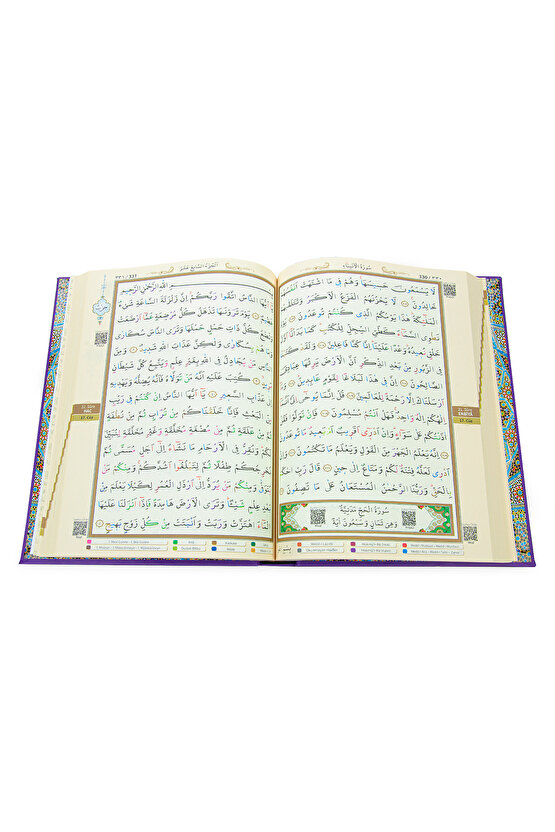 سُورَةُ الْاَنْبِيَاءِ
330 / ٣٣٠
لَا يَسْمَعُونَ حَسِيسَهَا وَهُمْ فِى مَا اشْتَهَتْ اَنْفُسُهُمْ
خَالِدُونَ لَا يَحْزُنُهُمُ الْفَزَعُ الْاَكْبَرُ وَتَتَلَقّٰيهُمُ
الْمَلٰٓئِكَةُ هٰذَا يَوْمُكُمُ الَّذِى كُنْتُمْ تُوعَدُونَ يَوْمَ
نَطْوِى السَّمَٓاءَ كَطَىِّ السِّجِلِّ لِلْكُتُبِ كَمَا بَدَأْنَٓا اَوَّلَ
خَلْقٍ نُعِيدُهُ وَعْدًا عَلَيْنَا اِنَّا كُنَّا فَاعِلِينَ وَلَقَدْ كَتَبْنَا
فِى الزَّبُورِ مِنْ بَعْدِ الذِّكْرِ اَنَّ الْاَرْضَ يَرِثُهَا عِبَادِىَ
الصَّالِحُونَ اِنَّ فِى هٰذَا لَبَلَاغًا لِقَوْمٍ عَابِدِينَ وَمَٓا
اَرْسَلْنَاكَ اِلَّا رَحْمَةً لِلْعَالَمِينَ قُلْ اِنَّمَا يُوحٰٓى اِلَىَّ
اَنَّمَٓا اِلٰهُكُمْ اِلٰهٌ وَاحِدٌ فَهَلْ اَنْتُمْ مُسْلِمُونَ فَاِنْ تَوَلَّوْا فَقُلْ
اٰذَنْتُكُمْ عَلٰى سَوَٓاءٍ وَاِنْ اَدْرِٓى اَقَرِيبٌ اَمْ بَعِيدٌ مَا تُوعَدُونَ
اِنَّهُ يَعْلَمُ الْجَهْرَ مِنَ الْقَوْلِ وَيَعْلَمُ مَا تَكْتُمُونَ وَاِنْ
اَدْرِى لَعَلَّهُ فِتْنَةٌ لَكُمْ وَمَتَاعٌ اِلٰى حِينٍ قَالَ رَبِّ احْكُمْ
بِالْحَقِّ وَرَبُّنَا الرَّحْمٰنُ الْمُسْتَعَانُ عَلٰى مَا تَصِفُونَ
سُورَةُ الْحَجِّ مَدَنِيَّةٌ
وَهِىَ ثَمَانٍ وَسَبْعُونَ اٰيَةً
21. Sûre
ENBİYÂ
17. Cüz
331 / ٣٣١
اَلْجُزْءُ السَّابِعَ عَشَرَ
بِسْمِ اللّٰهِ الرَّحْمٰنِ الرَّحِيمِ
يَٓا اَيُّهَا النَّاسُ اتَّقُوا رَبَّكُمْ اِنَّ زَلْزَلَةَ السَّاعَةِ شَىْءٌ
عَظِيمٌ يَوْمَ تَرَوْنَهَا تَذْهَلُ كُلُّ مُرْضِعَةٍ عَمَّٓا اَرْضَعَتْ
وَتَضَعُ كُلُّ ذَاتِ حَمْلٍ حَمْلَهَا وَتَرَى النَّاسَ سُكَارٰى
وَمَا هُمْ بِسُكَارٰى وَلٰكِنَّ عَذَابَ اللّٰهِ شَدِيدٌ وَمِنَ
النَّاسِ مَنْ يُجَادِلُ فِى اللّٰهِ بِغَيْرِ عِلْمٍ وَيَتَّبِعُ كُلَّ شَيْطَانٍ
مَرِيدٍ كُتِبَ عَلَيْهِ اَنَّهُ مَنْ تَوَلَّاهُ فَاَنَّهُ يُضِلُّهُ وَيَهْدِيهِ
اِلٰى عَذَابِ السَّعِيرِ يَٓا اَيُّهَا النَّاسُ اِنْ كُنْتُمْ فِى رَيْبٍ
مِنَ الْبَعْثِ فَاِنَّا خَلَقْنَاكُمْ مِنْ تُرَابٍ ثُمَّ مِنْ نُطْفَةٍ
ثُمَّ مِنْ عَلَقَةٍ ثُمَّ مِنْ مُضْغَةٍ مُخَلَّقَةٍ وَغَيْرِ مُخَلَّقَةٍ لِنُبَيِّنَ
لَكُمْ وَنُقِرُّ فِى الْاَرْحَامِ مَا نَشَٓاءُ اِلٰٓى اَجَلٍ مُسَمًّى ثُمَّ
نُخْرِجُكُمْ طِفْلًا ثُمَّ لِتَبْلُغُٓوا اَشُدَّكُمْ وَمِنْكُمْ مَنْ
يُتَوَفّٰى وَمِنْكُمْ مَنْ يُرَدُّ اِلٰٓى اَرْذَلِ الْعُمُرِ لِكَيْلَا يَعْلَمَ مِنْ
بَعْدِ عِلْمٍ شَيْئًا وَتَرَى الْاَرْضَ هَامِدَةً فَاِذَٓا اَنْزَلْنَا عَلَيْهَا
الْمَٓاءَ اهْتَزَّتْ وَرَبَتْ وَاَنْبَتَتْ مِنْ كُلِّ زَوْجٍ بَهِيجٍ
22. Sûre
HAC
17. Cüz